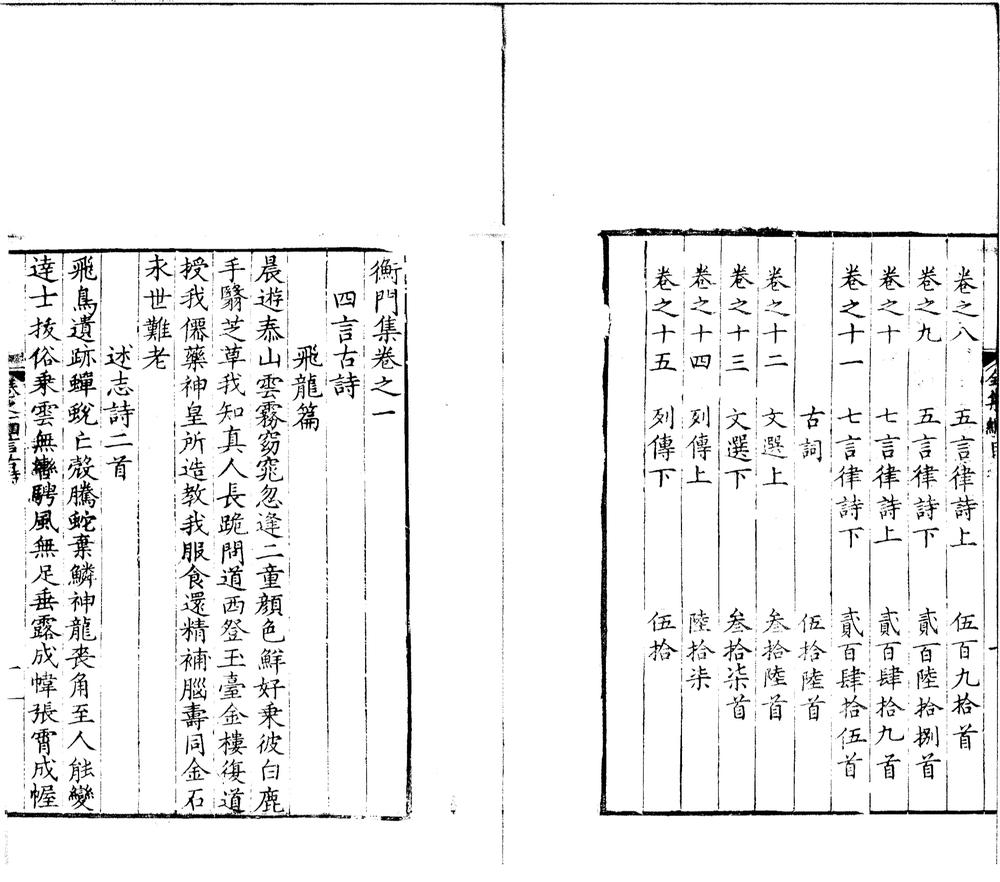 卷之八 五言律詩上 伍百九拾首
卷之九 五言律詩下 貳百陸拾捌首
卷之十 七言律詩上 貳百肆拾九首
卷之十一 七言律詩下 貳百肆拾伍首
古詞 伍拾陸首
卷之十二 文選上 叁拾陸首
卷之十三 文選下 叁拾柒首
卷之十四 列傳上 陸拾柒
卷之十五 列傳下 伍拾
衡門集卷之一
四言古詩
飛龍篇
晨遊泰山雲霧窈窕忽逢二童顏色鮮好乘彼白鹿
手翳芝草我知真人長跪問道西登玉臺金樓復道
授我僊藥神皇所造教我服食還精補腦壽同金石
永世難老
述志詩二首
飛鳥遺跡蟬蛻亡殼騰蛇棄鱗神龍喪角至人能變
達士拔俗乘雲無轡騁風無足垂露成幃張霄成幄